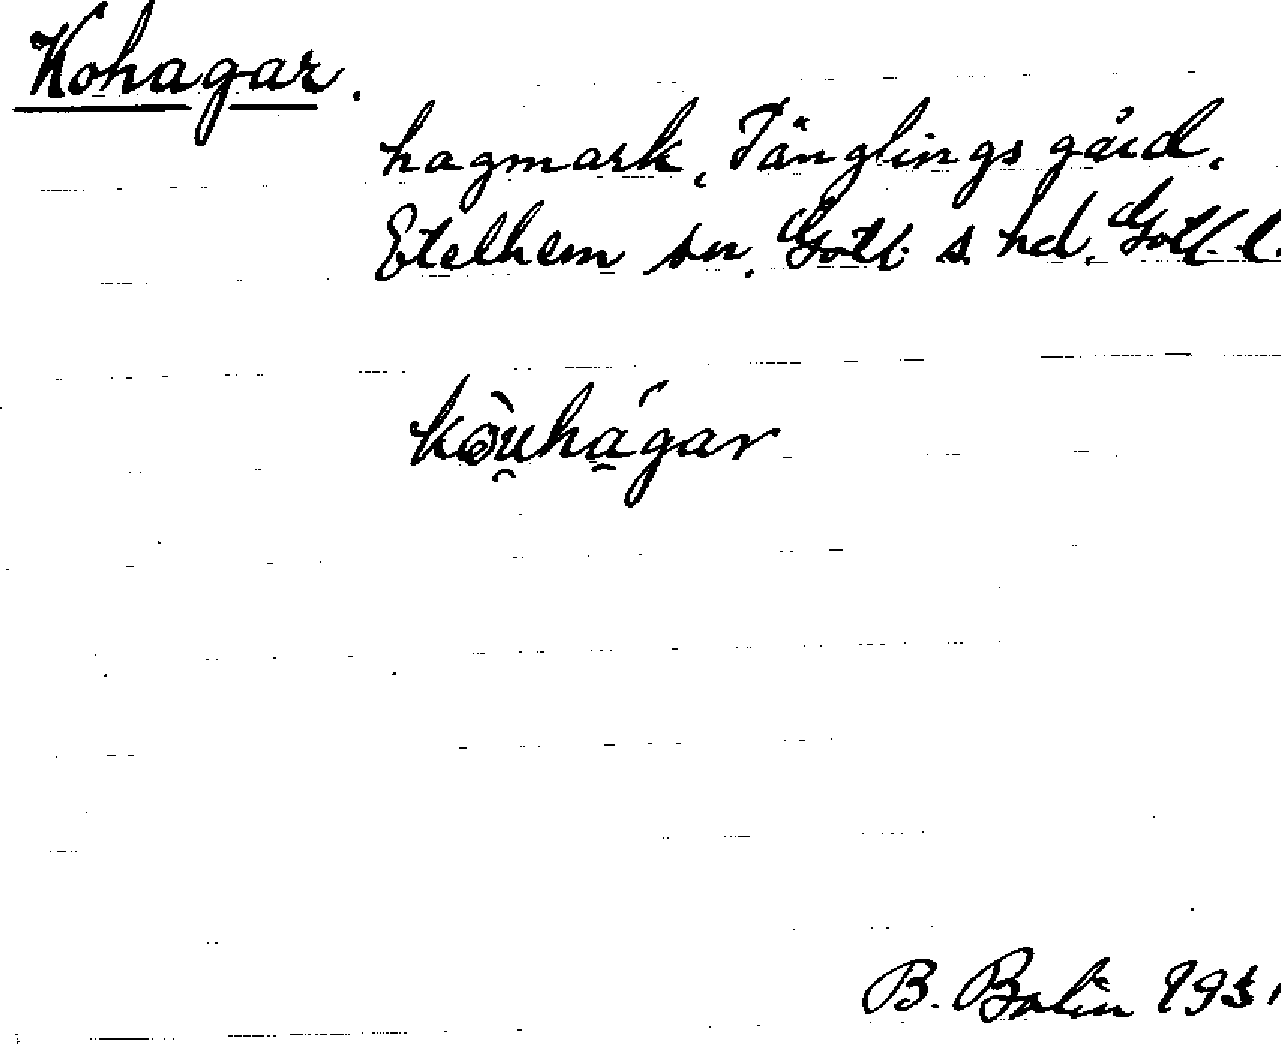 Kohagar.
hagmark, Tänglings gård.
Etelhem sn. Gotl. s. hd. Gotl. l.
kòu̯há̱gar
B. Bolin 1931